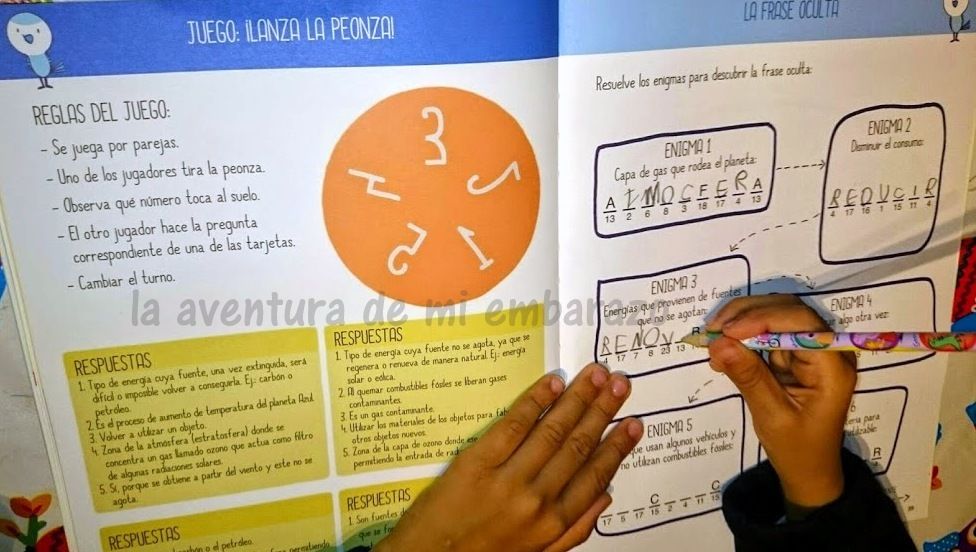 JUEGO: ¡LANZA LA PEONZA!
REGLAS DEL JUEGO:
- Se juega por parejas.
- Uno de los jugadores tira la peonza.
- Observa qué número toca al suelo.
- El otro jugador hace la pregunta
correspondiente de una de las tarjetas.
- Cambiar el turno.
3
1
2
la aventura de mi embarazo
RESPUESTAS
1. Tipo de energía cuya fuente, una vez extinguida, será
difícil o imposible volver a conseguirla. Ej.: carbón o
petróleo.
2. Es el proceso de aumento de temperatura del planeta Azul.
3. Volver a utilizar un objeto.
4. Zona de la atmósfera (estratosfera) donde se
concentra un gas llamado ozono que actúa como filtro
de algunas radiaciones solares.
5. Sí, porque se obtiene a partir del viento y este no se
agota.
RESPUESTAS
1. Tipo de energía cuya fuente no se agota, ya que se
regenera o renueva de manera natural. Ej.: energía
solar o eólica.
2. Al quemar combustibles fósiles se liberan gases
contaminantes.
3. Es un gas contaminante.
4. Utilizar los materiales de los objetos para
otros objetos nuevos.
5. Zona de la capa de ozono donde
permitiendo la entrada de
RESPUESTAS
carbón o el petróleo.
permitiendo
RESPUESTAS
1. Son fuentes
que se
LA FRASE OCULTA
Resuelve los enigmas para descubrir la frase oculta:
ENIGMA 1
Capa de gas que rodea el planeta:
A T M O C F E R A
13 2 6 8 3 18 17 4 13
ENIGMA 2
Disminuir el consumo:
R E D U C I R
4 17 16 1 15 11 4
ENIGMA 3
Energías que provienen de fuentes
que no se agotan:
R E N O V
4 17 7 8 23 13
ENIGMA 4
algo otra vez:
ENIGMA 5
que usan algunos vehículos y
no utilizan combustibles fósiles:
C C
17 5 17 15 2 4 11 15
6
para
R
4